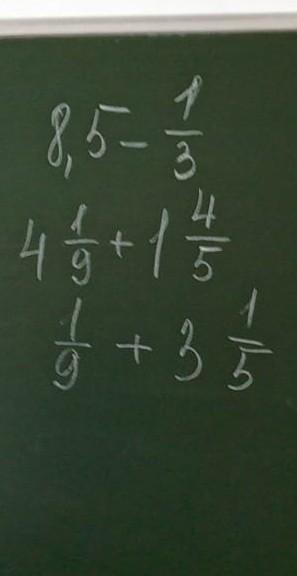 8,5 - 1/3
4 1/9 + 1 4/5
1/9 + 3 1/5